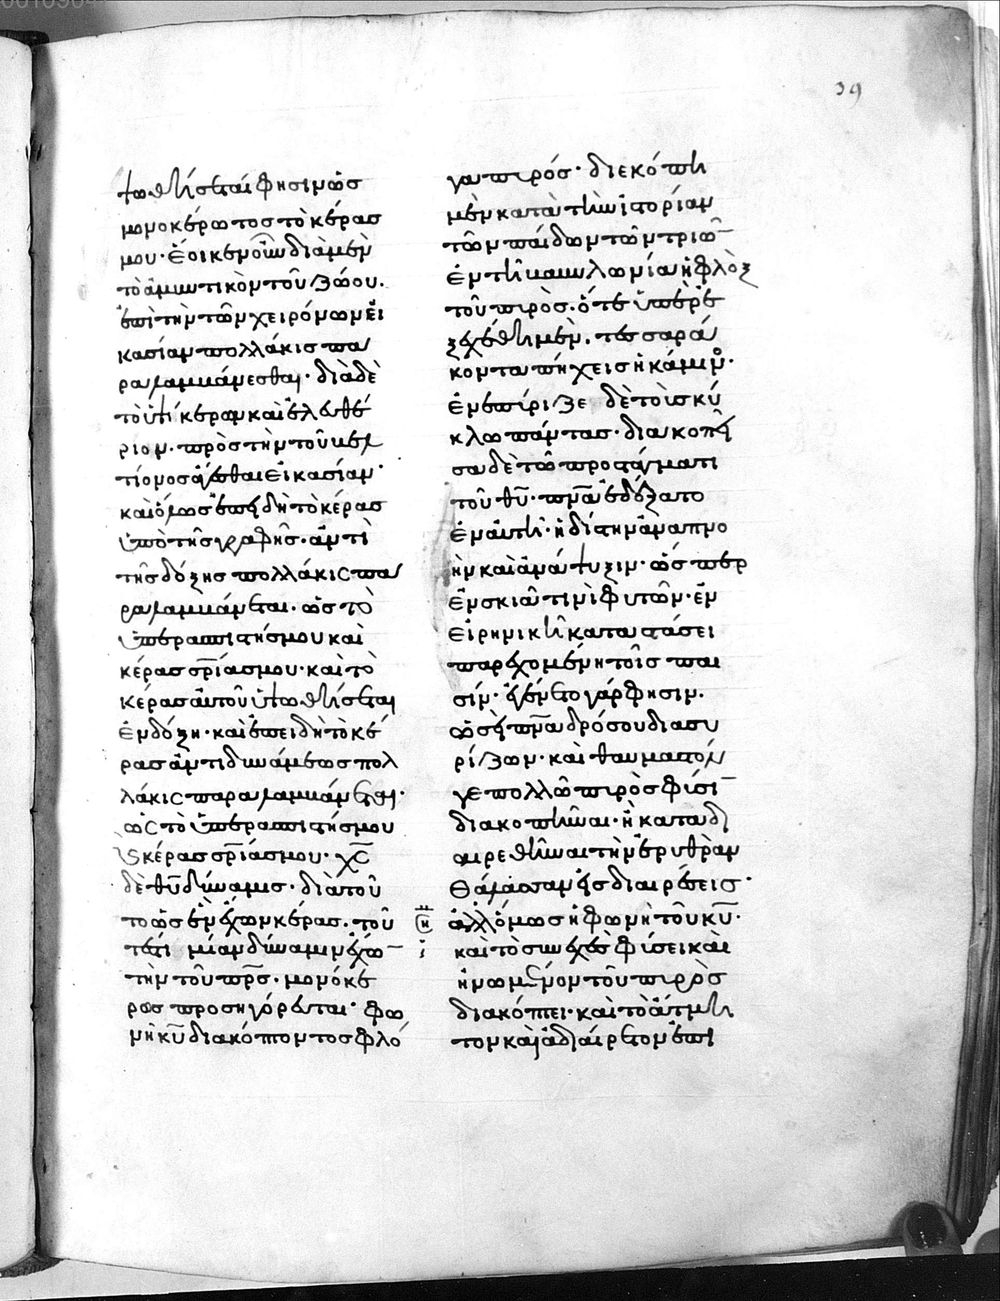 39
ψωθήσεται φησιν ὡς
μονοκέρωτος τὸ κέρας
μου· ἔοικεν οὖν διὰ μὲν
τὸ ἀμυντικὸν τοῦ ζώου.
ἐπὶ τὴν τῶν χειρόνων εἰ
κασίαν πολλάκις πα
ραλαμμάνεσθαι· διὰ δὲ
τὸ ὑψίκερων καὶ ἐλευθέ
ριον. πρὸς τὴν τοῦ βελ
τίονος ἄγεσθαι εἰκασίαν·
καὶ ὅμως ἐπειδὴ τὸ κέρας
ὑπὸ τῆς γραφῆς. ἀντὶ
τῆς δόξης πολλάκις πα
ραλαμμάνεται. ὡς τὸ
ὑπεραπιστήσμου καὶ
κέρας σρίασμου· καὶ τὸ
κέρας αὐτοῦ ὑψωθήσεται
ἐν δόξῃ· καὶ ἐπειδὴ τὸ κέ
ρας ἀντὶ δυνάμεως πολ
λάκις παραλαμμάνεται·
ὡς τὸ ὑπεραπιστήσμου
κ κέρας σρίασμου· χς
δὲ θυ δύναμις· διὰ τοῦ
το ὡς ἓν ἔχων κέρας. τοῦ
τέστι μίαν δύναμιν ἔχω
τὴν τοῦ πρς. μονόκε
ρως προσηγόρευται· φω
νὴ κυ διακόπτοντος φλό
γα πυρός· διεκόπη
μὲν κατὰ τὴν ἱστορίαν
τῶν παίδων τῶν τριῶ
ἐν τῇ βαβυλωνίᾳ ἡ φλὸξ
τοῦ πυρὸς. ὅτε ὑπὲρ ἐ
ξεχέθη μὲν. τεσσαρά
κοντα πήχεις ἡ κάμιν·
ἐνεπύριζε δὲ τοὺς κύ
κλω πάντας· διακοπεῖ
σα δὲ τῶ προστάγματι
τοῦ θυ· πνα ἐδέξατο
ἐν αὐτῇ· ἡδίστην ἀναπνο
ὴν καὶ ἀνάψυξιν· ὡς περ
ἐν σκιᾶ τινὶ φυτῶν· ἐν
εἰρηνικῇ καταστάσει
παρεχομένη τοῖς παι
σίν· ἐγένετο γάρ φησιν.
ὡσεὶ πνα δρόσου διασυ
ρίζων· καὶ θαυμαστόν
γε πολλῶ πυρὸς φύσι
διακοπῆναι· ἢ κατα δι
αιρεθῆναι τὴν ἐρυθρὰν
θάλασσαν εἰς διαιρέσεις·
ἀλλ ὅμως ἡ φωνὴ τοῦ κυ·
καὶ τὸ συνεχὲς φύσει καὶ
ἡνωμένον τοῦ πυρὸς
διακόπτει· καὶ τὸ ἄτμη
τον καὶ ἀδιαίρετον ἐπι